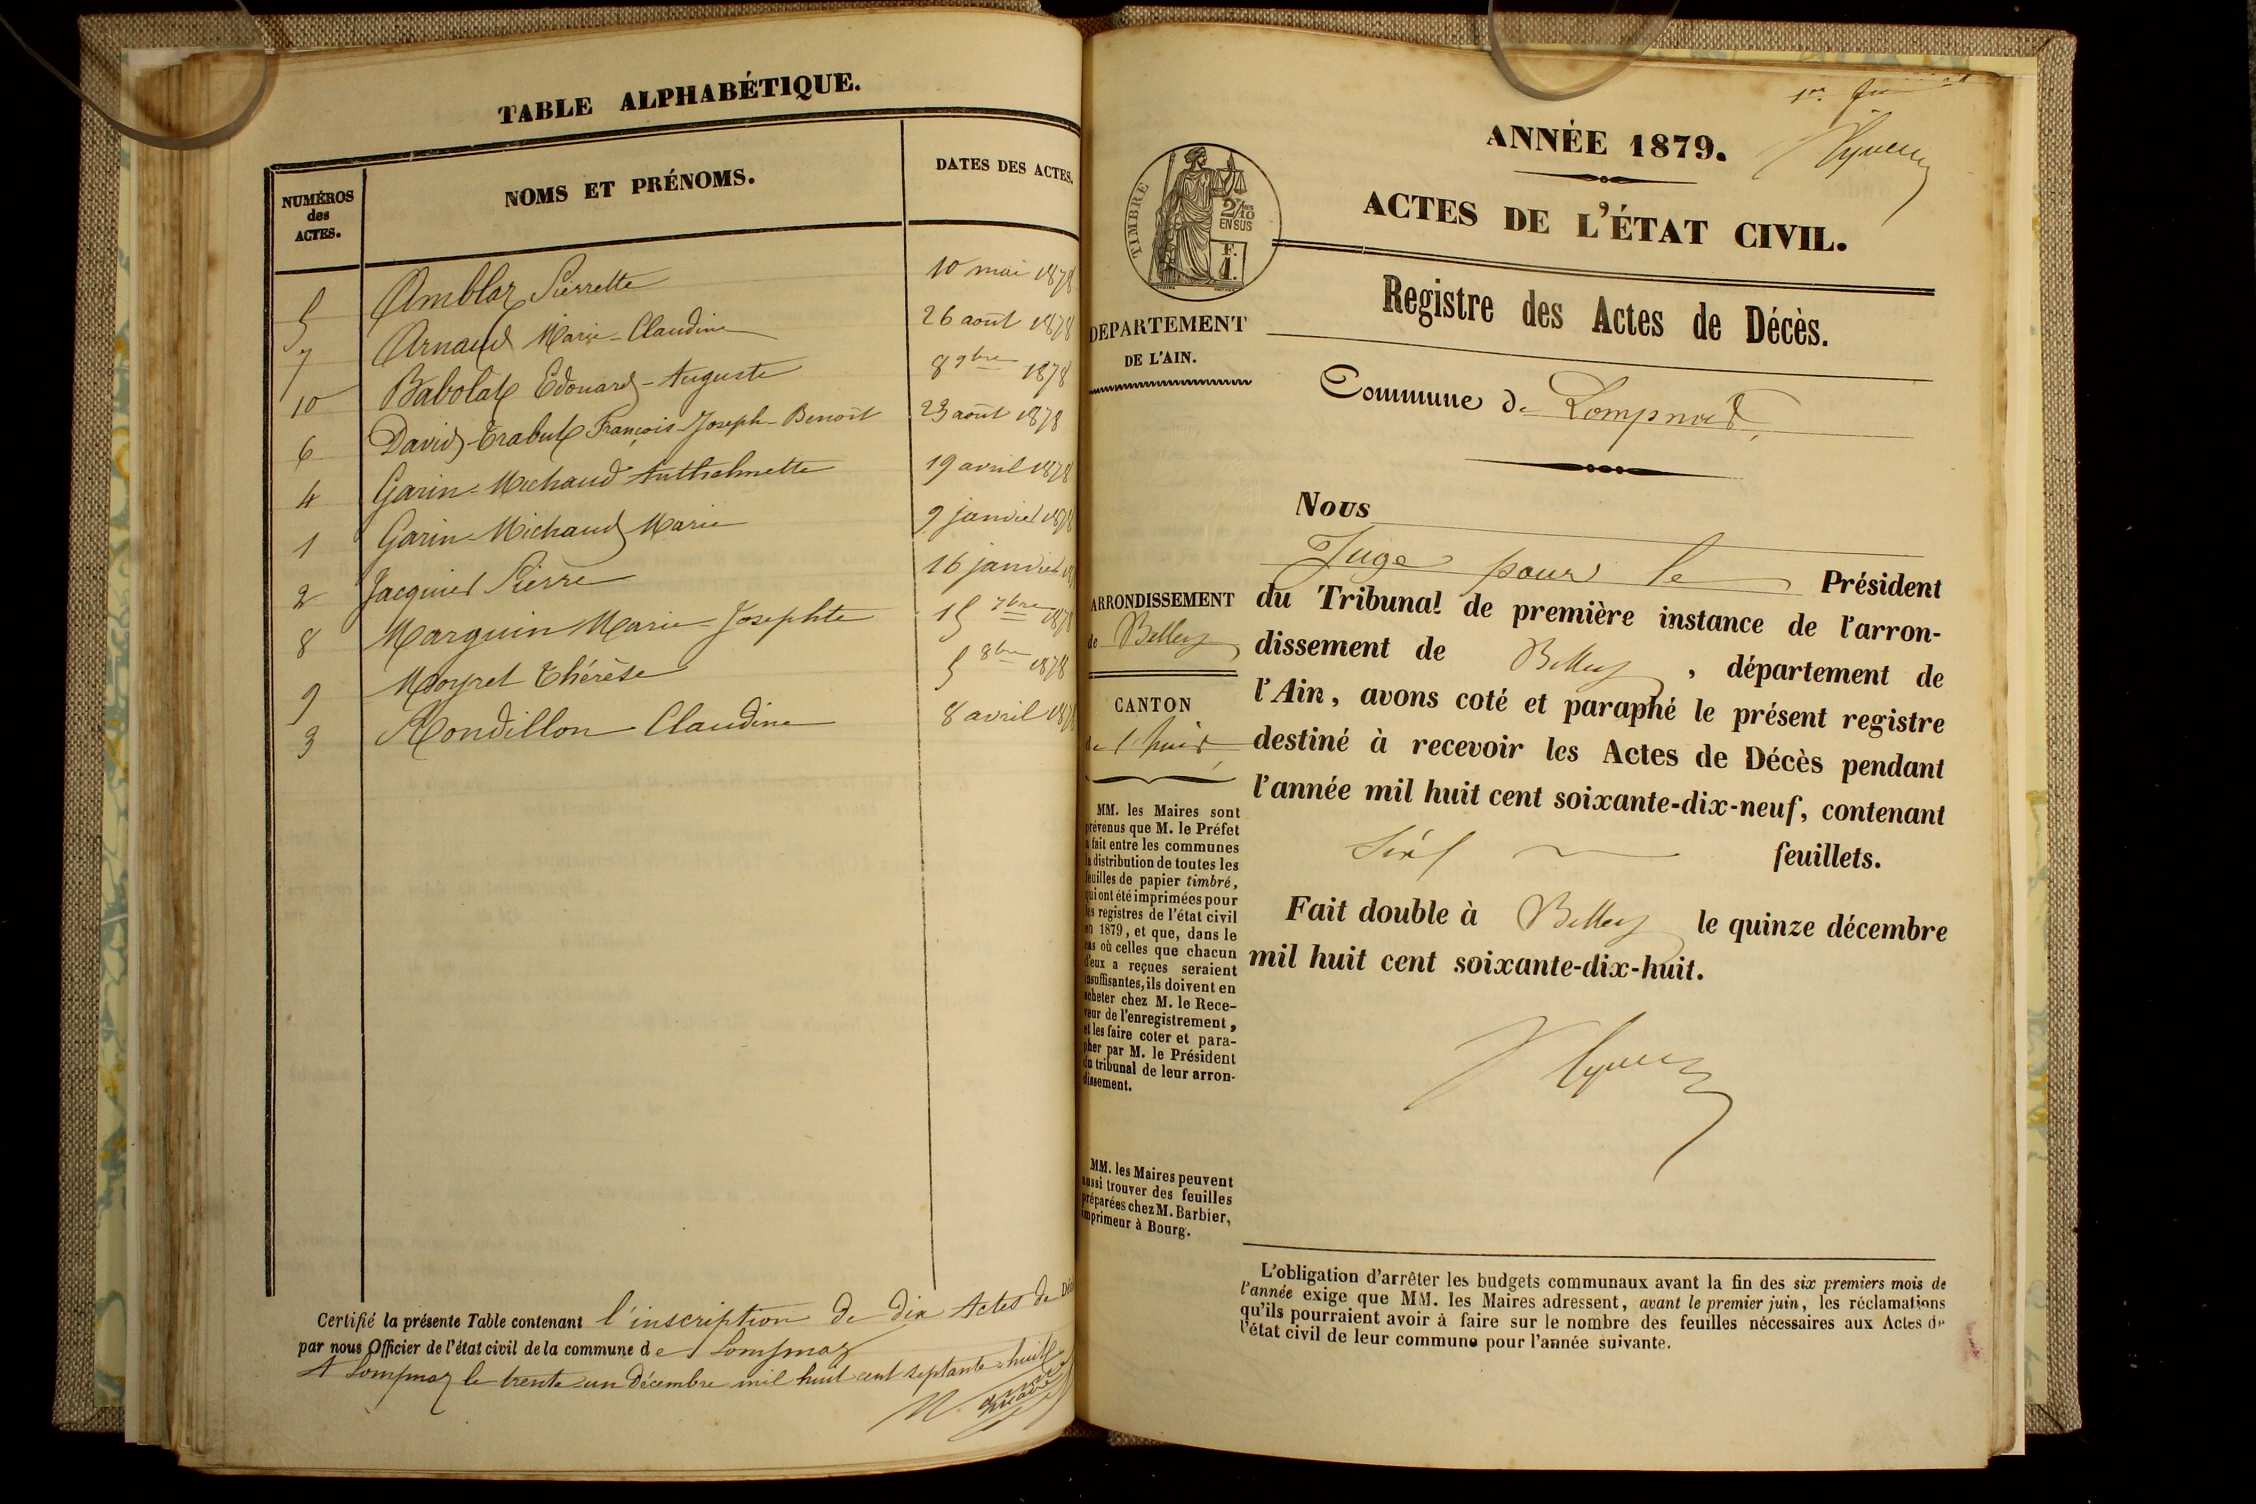 TABLE ALPHABÉTIQUE.
NUMÉROS des ACTES. NOMS ET PRÉNOMS. DATES DES ACTES.
5 Amblar Pierrette 10 mai 1878
7 Arnaud Marie-Claudine 26 août 1878
10 Babolat Edouard-Auguste 8 9bre 1878
6 David-Trabut François-Joseph-Benoît 23 août 1878
4 Garin-Michaud Anthelmette 19 avril 1878
1 Garin-Michaud Marie 9 janvier 1878
2 Jacquier Pierre 16 janvier
8 Marguin Marie-Josephte 15 7bre 1878
9 Moyret Thérèse 5 8bre 1878
3 Rondillon Claudine 8 avril 1878
Certifié la présente Table contenant l'inscription de dix Actes de
par nous Officier de l'état civil de la commune de Lompnaz
A Lompnaz le trente un Décembre mil huit cent septante-huit
ANNÉE 1879.
ACTES DE L'ÉTAT CIVIL.
TIMBRE
2/10
EN SUS
F.
1.
Registre des Actes de Décès.
DÉPARTEMENT
DE L'AIN.
Commune de
Nous
Juge pour le Président
ARRONDISSEMENT
de Belley
CANTON
du Tribunal de première instance de l'arron-
dissement de Belley, département de
l'Ain, avons coté et paraphé le présent registre
destiné à recevoir les Actes de Décès pendant
l'année mil huit cent soixante-dix-neuf, contenant
Six feuillets.
Fait double à Belley le quinze décembre
mil huit cent soixante-dix-huit.
MM. les Maires sont
prévenus que M. le Préfet
a fait entre les communes
la distribution de toutes les
feuilles de papier timbré,
qui ont été imprimées pour
les registres de l'état civil
en 1879, et que, dans le
cas où celles que chacun
d'eux a reçues seraient
insuffisantes, ils doivent en
acheter chez M. le Rece-
veur de l'enregistrement,
et les faire coter et para-
pher par M. le Président
du tribunal de leur arron-
dissement.
MM. les Maires peuvent
aussi trouver des feuilles
préparées chez M. Barbier,
imprimeur à Bourg.
L'obligation d'arrêter les budgets communaux avant la fin des six premiers mois de
l'année exige que MM. les Maires adressent, avant le premier juin, les réclamations
qu'ils pourraient avoir à faire sur le nombre des feuilles nécessaires aux Actes de
l'état civil de leur commune pour l'année suivante.